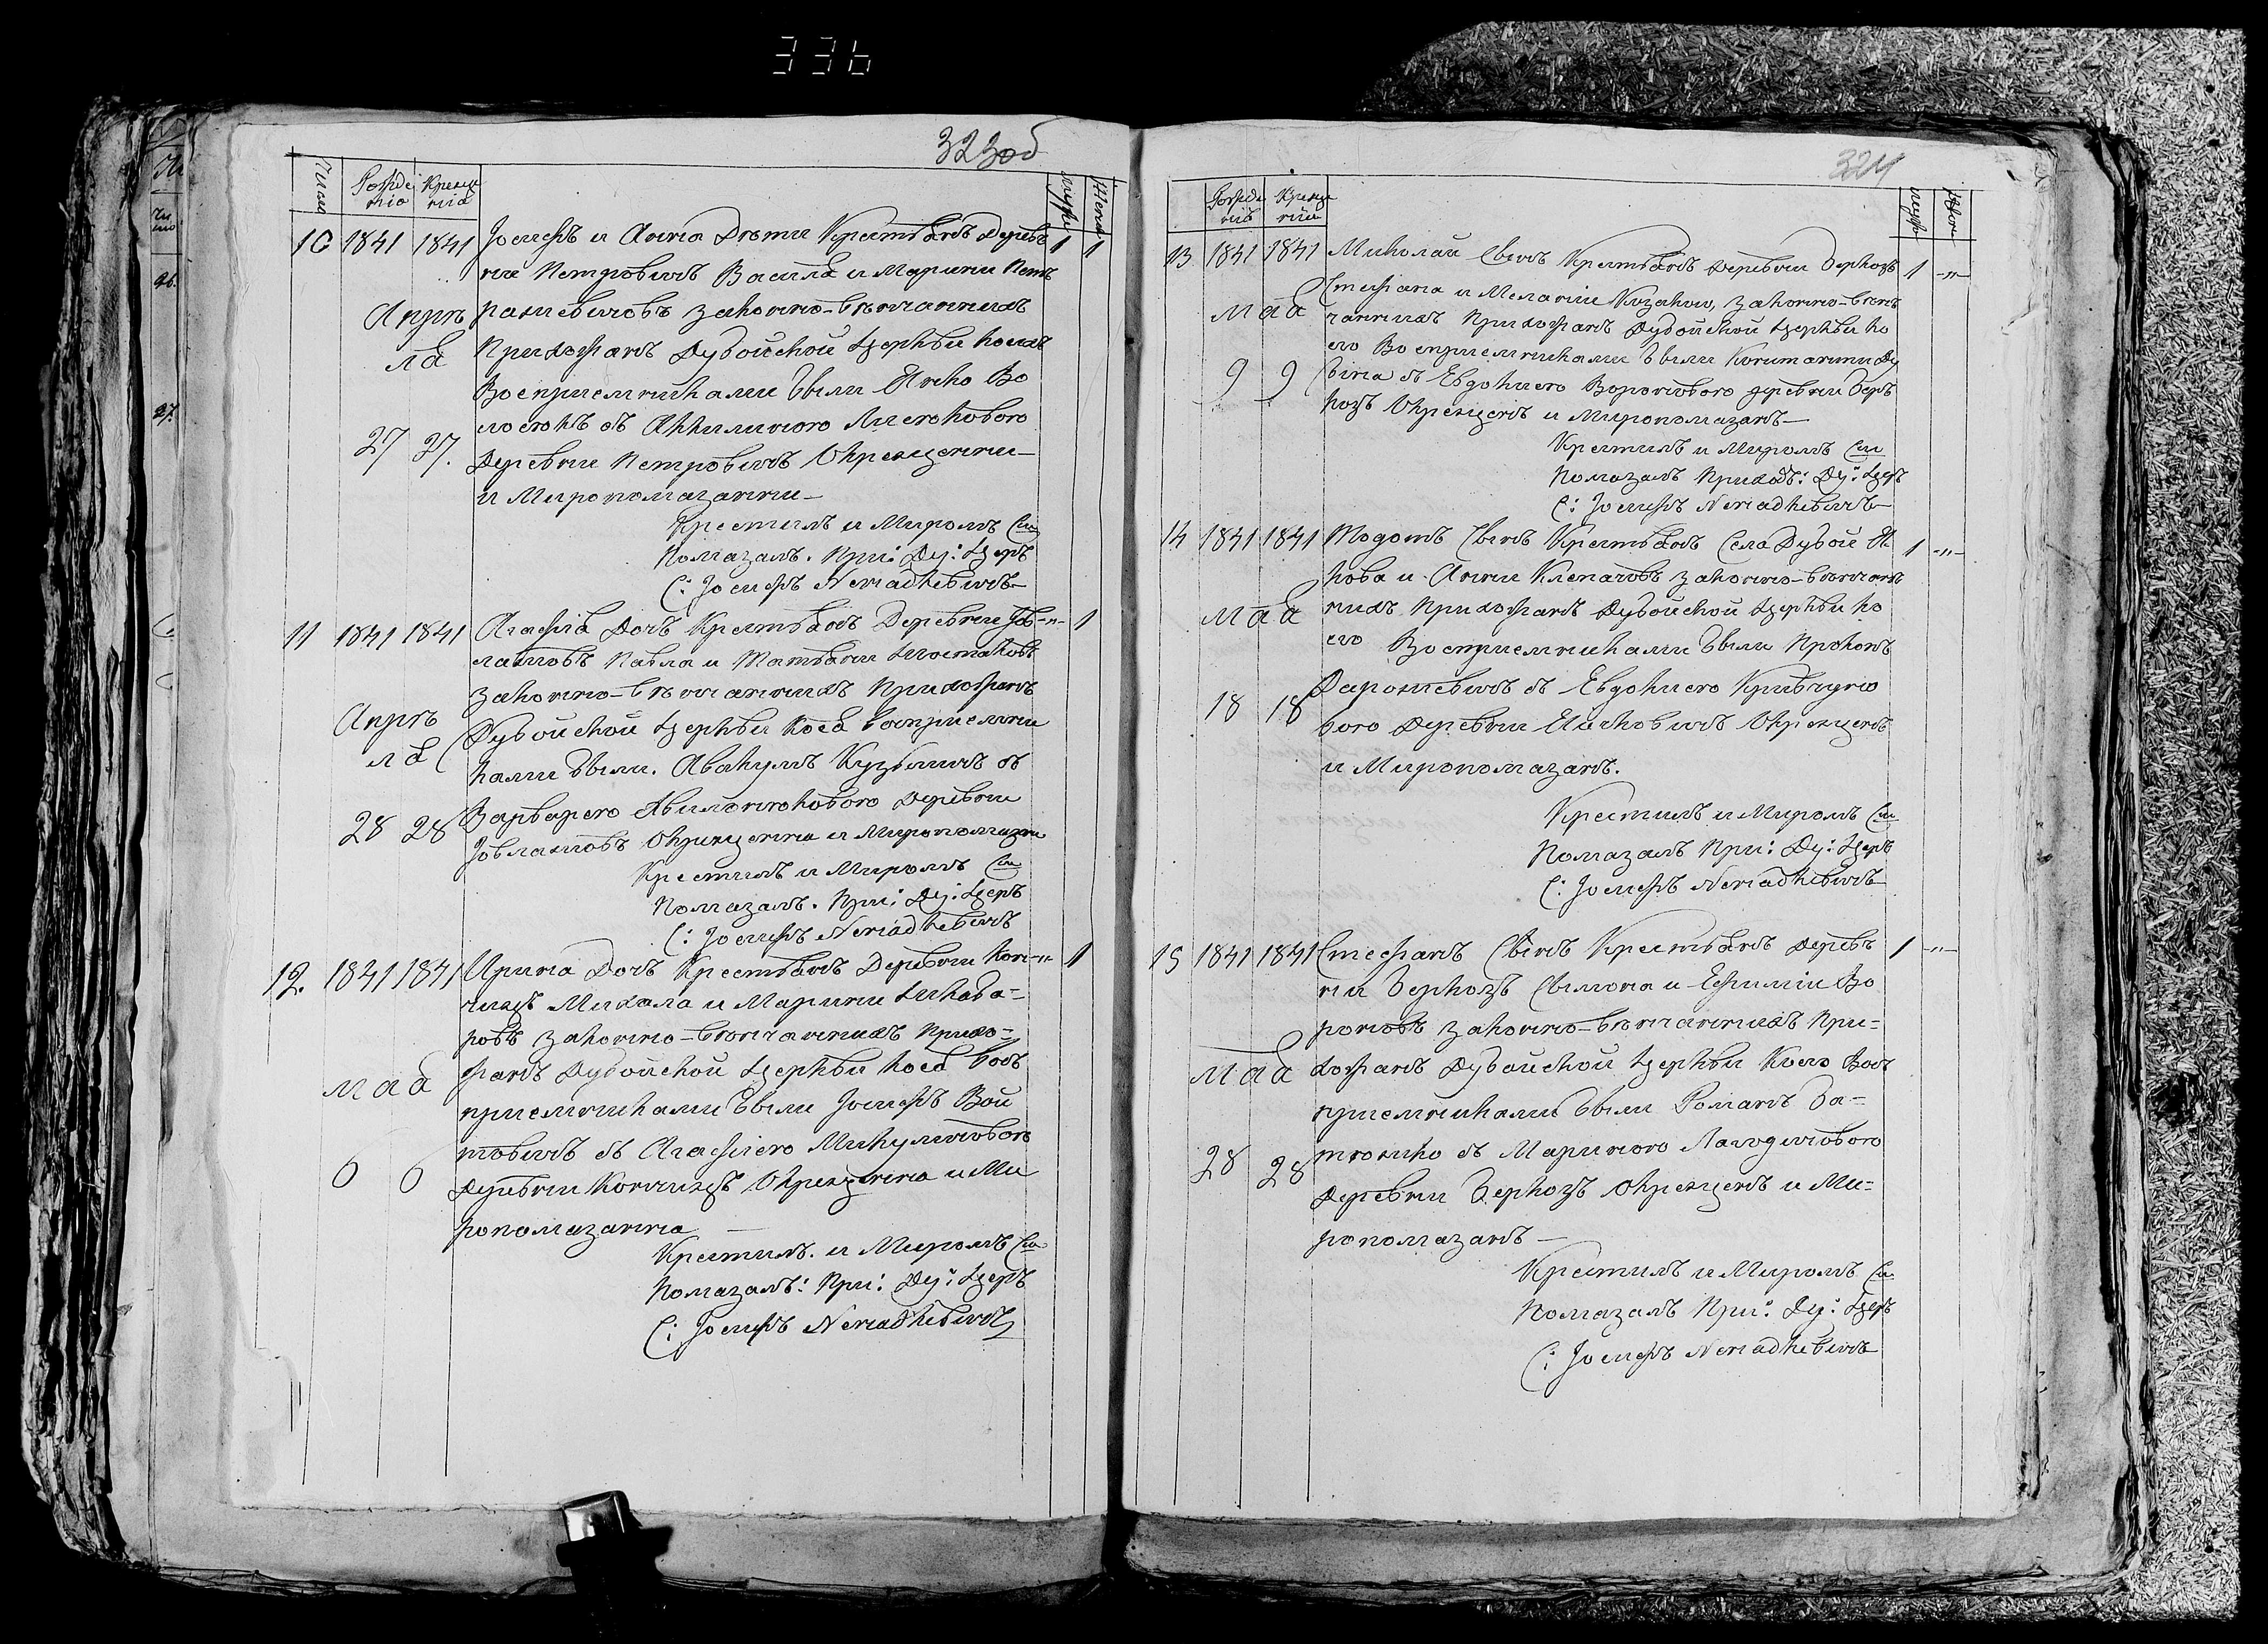 336
323об
Число
Рожде
нія
Креще
нія
Мужс
Женс
10 1841 1841 Іосифъ и Анна Дѣти Крестьянъ Дерев 1 1
ни Петровичъ Василя и Марини Пет
рашевичовъ законно-вѣнчанныхъ
Апрѣ
ля
Прихожанъ Дубойской Церкви коихъ
Воспріемниками были
съ Аккилиною
27 27.
Деревни Петровичъ Окрещенни
и Миропомазанни
Крестилъ и Миромъ Св
Помазалъ. При: Ду: Церк
С: Іосифъ Ненадкевичъ
11 1841 1841 Агафія Дочь Крестьянъ Деревни -"- 1
Павла и Татьяни Шостаковъ
законно-вѣнчанныхъ Прихожанъ
Апрѣ
ля
Дубойской Церкви коея воспріемни
ками были. Авакумъ Кузьмичъ съ
28 28
Варварею Деревни
Іовлашовъ Окрещенна и Миропомазан
Крестилъ и Миромъ Св
Помазалъ. При: Ду: Церк
С: Іосифъ Ненадкевичъ
12. 1841 1841 Ирина Дочь Крестьянъ Деревни Кон -"- 1
чицъ Михала и Марини Цикава-
ровъ законно-вѣнчанныхъ Прихо-
мая
жанъ Дубойской Церкви коея Вос
пріемниками были Іосифъ Вои
товичъ съ Агафіею Микуличовою
6 6
Деревни Кончицъ Окрещенна и Ми
ропомазанна
Крестилъ. и Миромъ Св
Помазалъ: При: Ду: Церк
С: Іосифъ Ненадкевичъ
324
Рожде
нія
Креще
нія
Мужс
Жен
13 1841 1841 Миколай Сынъ Крестьянъ деревни Беркозъ 1 -"-
Стефана и Меланіи Козаков, законно-вѣн
мая
чанныхъ Прихожанъ Дубойской Церкви ко
его Воспріемниками были
9 9
съ Евдокиею Вороновою деревни Бер
козъ Окрещенъ и Миропомазанъ
Крестилъ и Миромъ Св
Помазалъ Приход: Ду: Церк
С: Іосифъ Ненадкевичъ
14 1841 1841 Тодотъ Сынъ Крестьянъ Села Дубой Я 1 -"-
кова и Анни Клепачовъ законно-вѣнчан
мая
ныхъ Прихожанъ Дубойской Церкви ко
его Воспріемниками были Прокопъ
18 18
Дарошевичъ съ Евдокиею Кривчуно
вою Деревни Окрещенъ
и Миропомазанъ.
Крестилъ и Миромъ Св
Помазалъ При: Ду: Церк
С: Іосифъ Ненадкевичъ
15 1841 1841 Стефанъ Сынъ Крестьянъ Дерев 1 -"-
ни Беркозъ Сымона и Ефиміи Во
роновъ законно-вѣнчанныхъ При-
мая
хожанъ Дубойской Церкви Коего Вос
пріемниками были Романъ Ба-
28 28
съ Мариною Лагодичовою
Деревни Беркозъ Окрещенъ и Ми-
ропомазанъ
Крестилъ и Миромъ Св
Помазалъ При: Ду: Церк
С: Іосифъ Ненадкевичъ